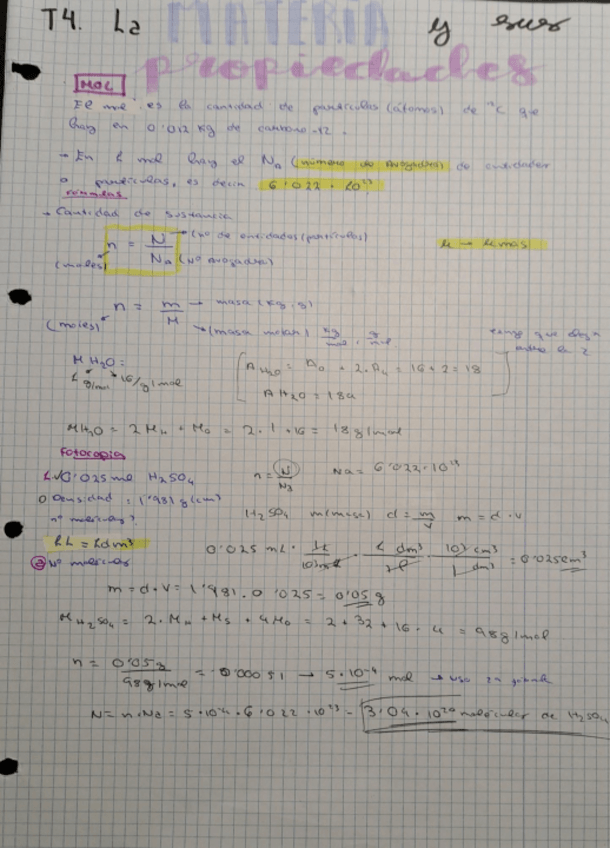 T4. La MATERIA y sus
propiedades
MOL
El mol es la cantidad de partículas (átomos) de ¹²C que
hay en 0'012 kg de carbono-12.
→ En 1 mol hay el NA (número de Avogadro) de entidades
o partículas, es decir 6'022 · 10²³
Fórmulas
→ Cantidad de sustancia
n = N/NA → (nº de entidades (partículas)
(moles) (Nº Avogadro)
n = m/M → masa (kg, g)
(moles) → (masa molar) kg/mol, g/mol
M H2O:
1 g/mol 16/g/mol
A H2O = AO + 2·AH = 16 + 2 = 18
A H2O = 18u
M H2O = 2MH + MO = 2·1 + 16 = 18 g/mol
Fotocopia
1. 0'025 mL H2SO4
Densidad = 1'981 g/cm³
nº moléculas?
n = N/NA Na = 6'022·10²³
H2SO4 m(masa) d = m/v m = d·v
1L = 1dm³
Nº moléculas
0'025 mL · 1L/10³mL · 1 dm³/1L · 10³ cm³/1 dm³ = 0'025cm³
m = d·v = 1'981 · 0'025 = 0'05 g
M H2SO4 = 2·MH + MS + 4MO = 2 + 32 + 16·4 = 98 g/mol
n = 0'05g/98g/mol = 0'00051 → 5·10⁻⁴ mol
N = n·Na = 5·10⁻⁴·6'022·10²³ = 3'04·10²⁰ moléculas de H2SO4